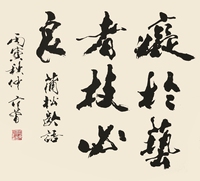 癡於藝
者技必
良
蒲松齡語
丙寅秋仲